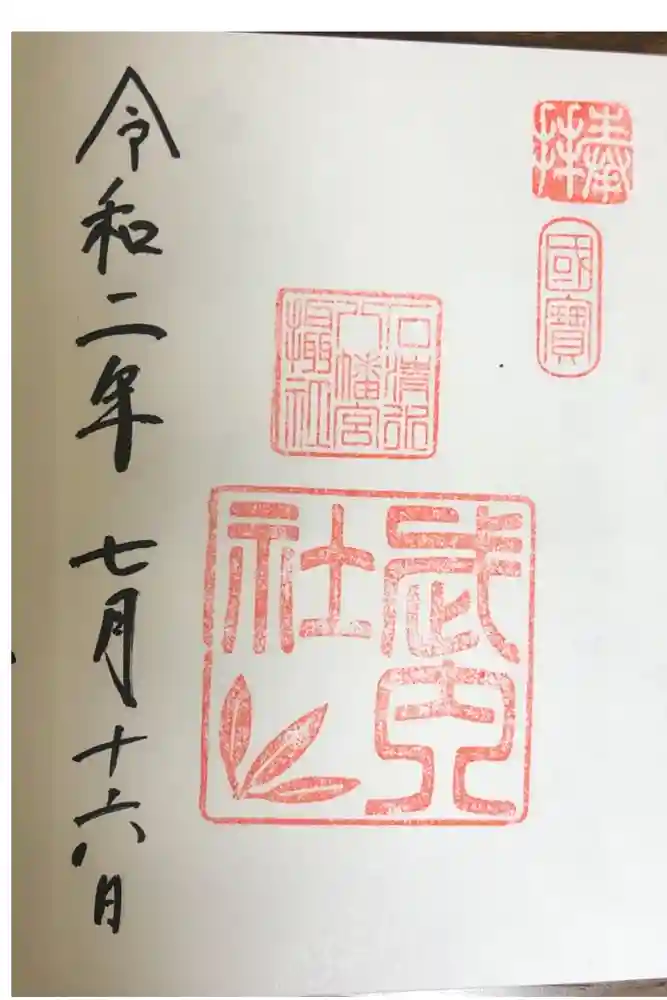 奉拝
國寶
石清水
八幡宮
摂社
武内
社
令和二年 七月十六日